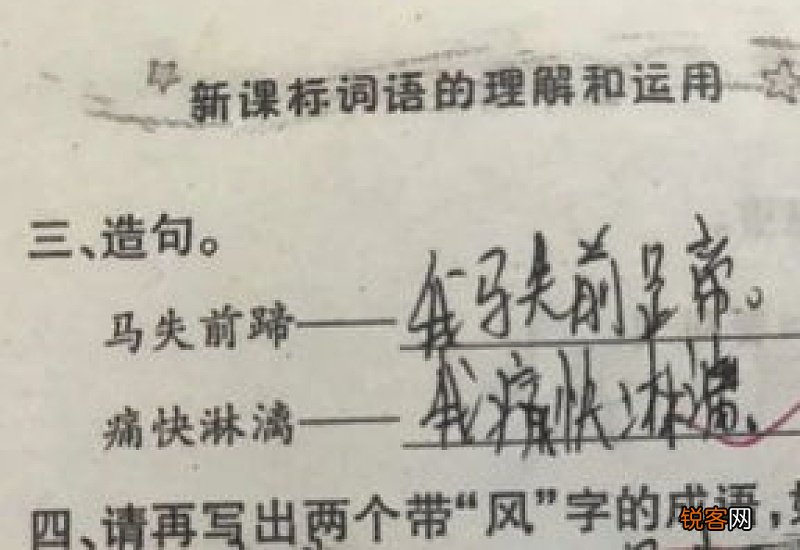 新课标词语的理解和运用
三、造句。
马失前蹄——我马失前蹄。
痛快淋漓——我痛快淋漓。
四、请再写出两个带“风”字的成语，
锐客网